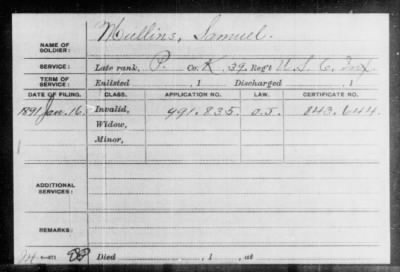 NAME OF SOLDIER: Mullins, Samuel.
SERVICE: Late rank, P. Co. K, 39 Reg't U.S.C. Inf.
TERM OF SERVICE: Enlisted , 1 Discharged , 1
DATE OF FILING. CLASS. APPLICATION NO. LAW. CERTIFICATE NO.
1891 Jan. 16. Invalid, 991.835. O.J. 843.644.
Widow,
Minor,
ADDITIONAL SERVICES:
REMARKS:
Died , 1 , at